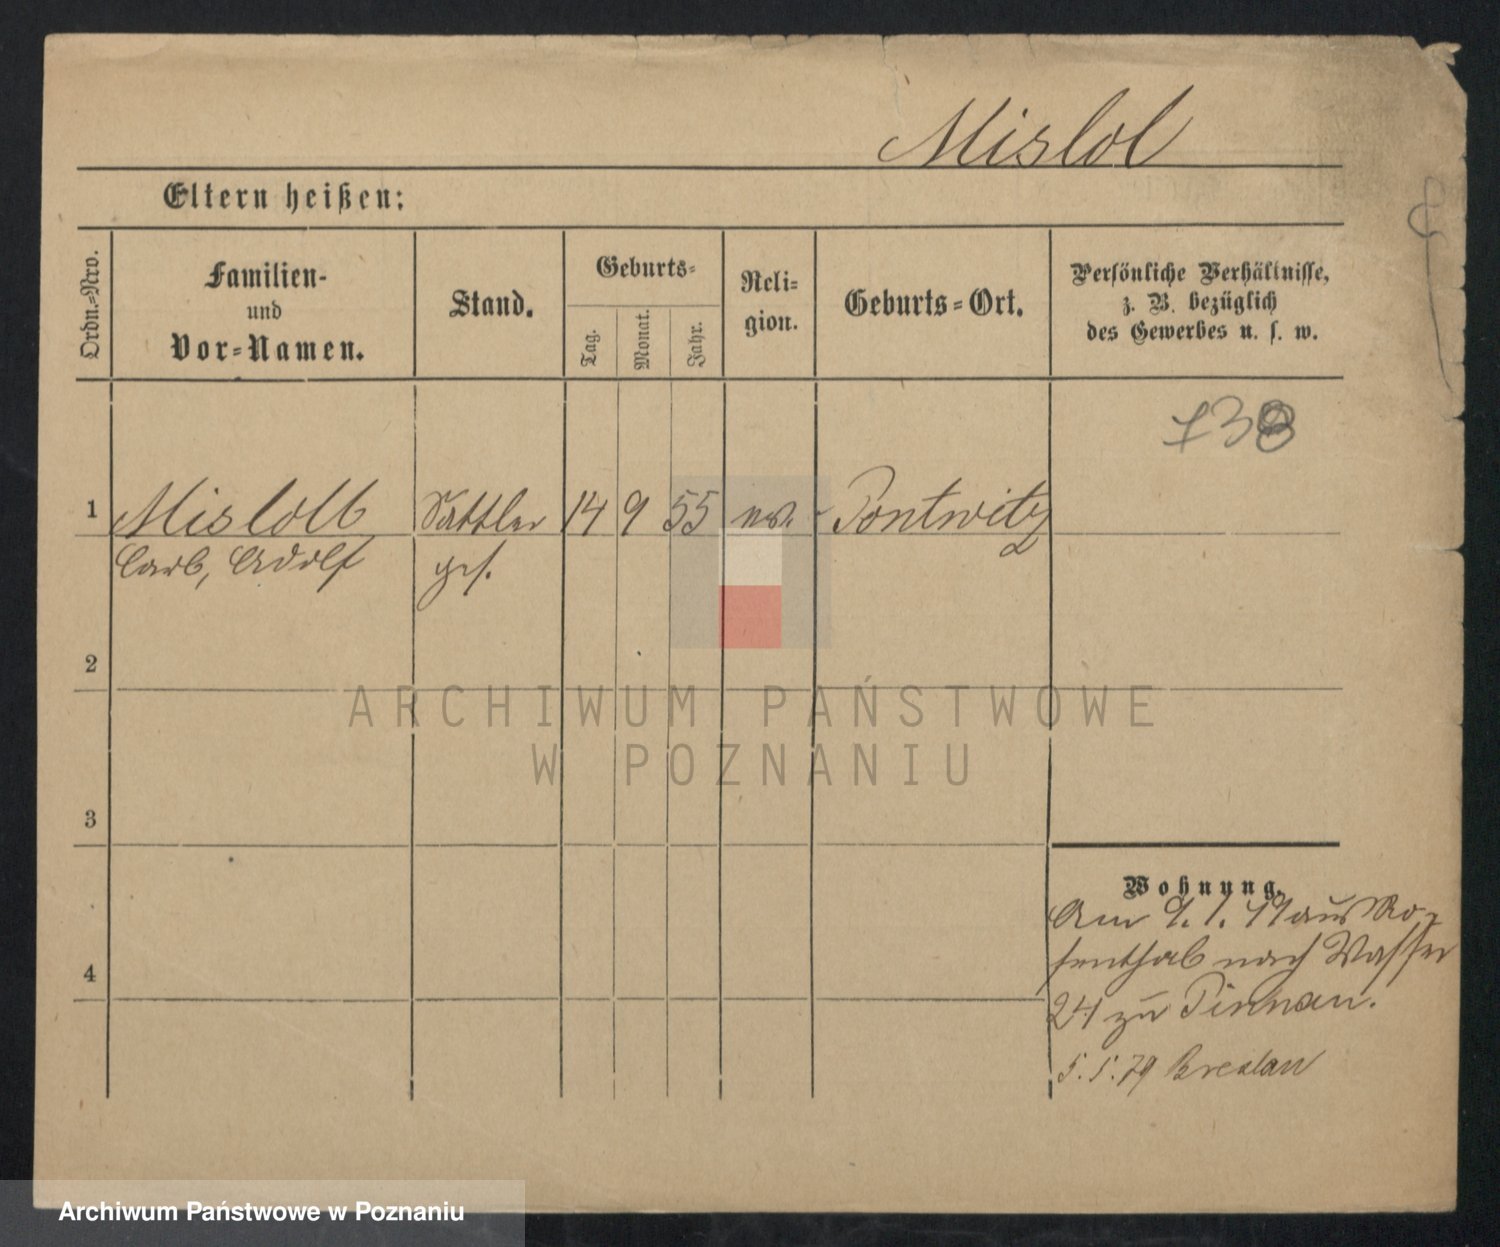 Mislol
Eltern heißen:
Ordn.=Nro.
Familien-
und
Vor=Namen.
Stand.
Geburts=
Tag.
Monat.
Jahr.
Reli=
gion.
Geburts=Ort.
Persönliche Verhältnisse,
z. B. bezüglich
des Gewerbes u. s. w.
738
1 Sattler 14 9 55 Pontwitz
Carl, Adolf ges.
2
ARCHIWUM PAŃSTWOWE
W POZNANIU
3
Wohnung.
Am 9. 1. 79 aus Ro-
senthal nach Wasser
4
24 zu
5. 5. 79 Breslau
Archiwum Państwowe w Poznaniu